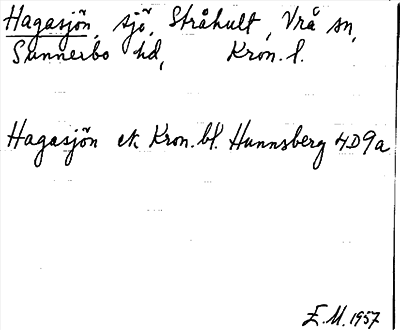 Hagasjön, sjö, Stråhult, Vrå sn,
Sunnerbo hd, Kron. l.
Hagasjön ek Kron. bl. Hunnsberg 4D9a
E.M. 1957